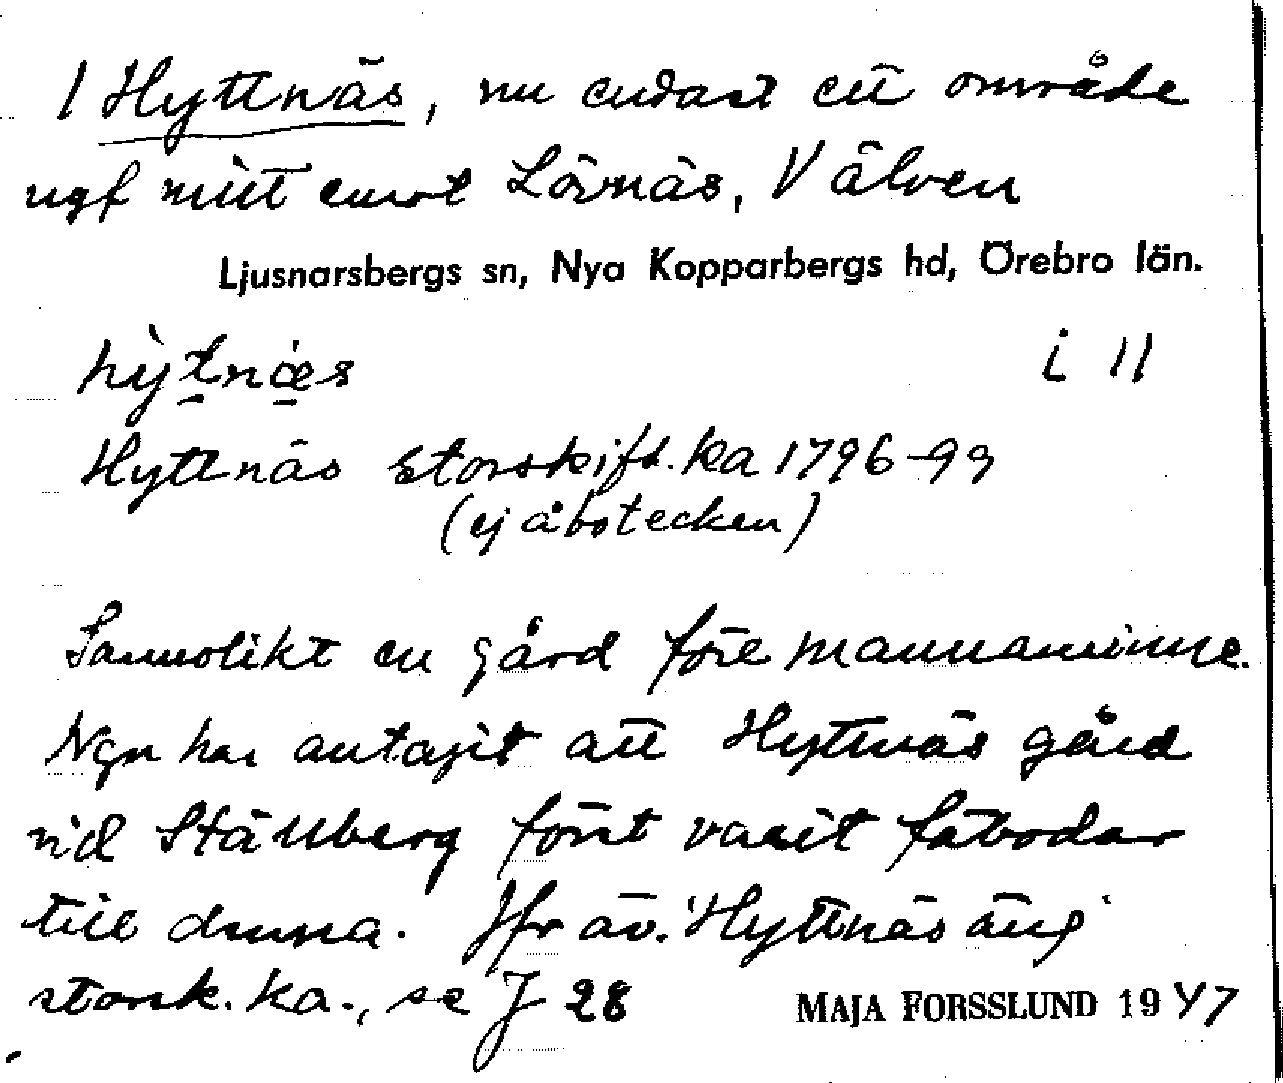 1 Hyttnäs, nu endast ett område
ugf mitt emot Lövnäs, V älven
Ljusnarsbergs sn, Nya Kopparbergs hd, Örebro län.
hỳtnæ̀s i 11
Hyttnäs Storskift. ka 1796-99
(ej åbotecken)
Sannolikt en gård före mannaminne.
Ngn har antagit att Hyttnäs gård
vid Ställberg först varit fäbodar
till denna. Jfr äv. 'Hyttnäs äng'
storsk. ka., se J 28
MAJA FORSSLUND 1947